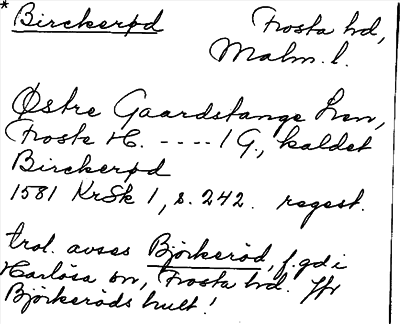 * Birckerød Frosta hd,
Malm. l.
Østre Gaardstange Len,
Froste H. ---- 1 G., kaldet
Birckerød
1581 KrSk 1, s. 242. regest.
trol. avses Björkeröd, f. gd i
Harlösa sn, Frosta hd. Jfr
Björkeröds hult!